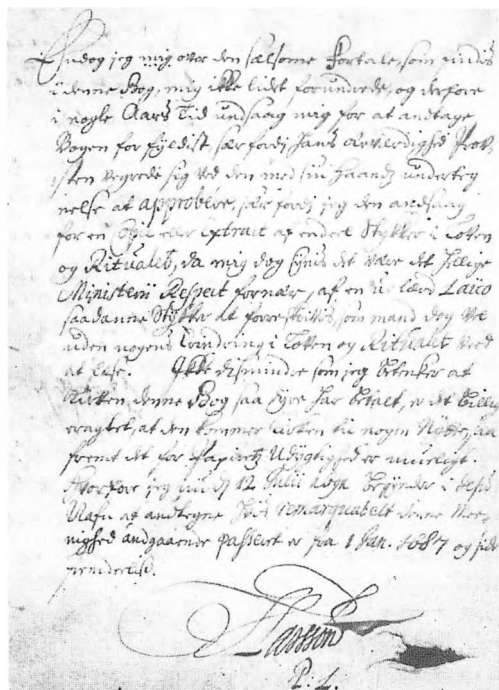 Endog jeg mig over den sælsome Fortale, som findis
i denne Bog, mig ikke lidet forundrede, og derfore
i nogle Aars Tid undsaag mig for at andtage
Bogen for fyldist, sær fordj hans Ærværdighed Prov-
sten vegrede sig ved den med sin Haand underteg
nelse at approbere, sær fordj jeg den andsaag
for en Copie eller Extrait af endeel Stykker i Loven
og Ritualet, da mig dog syndis det være det Hellige
Ministerii Respect fornær, af en u-lærd Laico
saadanne Stykker at forreskrivis, som mand dog
uden nogens Erindring i Loven og Ritualet veed
at læse. Ikke dismindre som jeg betenker at
Kirken denne Bog saa dyre har betalt, er det billig
eragtet, at den kommer Kirken til nogen Nytte, saa
fremt det for Papiretz Udygtighed er mueligt.
Hvorfore jeg nu dj 12 Julii begynder i Jesu
Nafn at andtegne hvis remarquabelt denne Me-
nighed andgaaende passeret er fra 1 Jan. 1687 og
P. L.